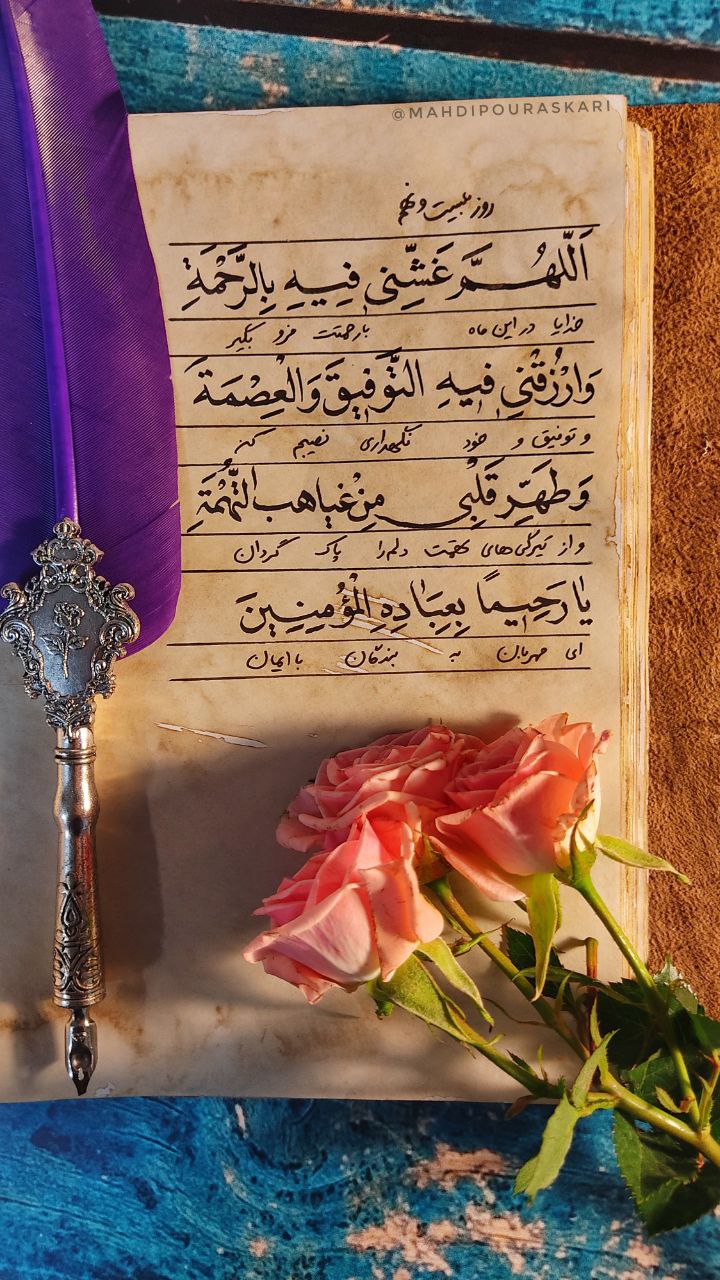 @MAHDIPOURASKARI
روز بیست و نهم
اَللّهُمَّ غَشِّنی فیهِ بِالرَّحْمَةِ
خدایا در این ماه با رحمتت فرو بگیر
وَارْزُقْنی فیهِ التَّوْفیقَ وَالْعِصْمَةَ
و توفیق و خود نگهداری نصیبم کن
وَطَهِّرْ قَلْبی مِنْ غَیاهِبِ التُّهْمَةِ
و از تیرگی‌های تهمت دلم را پاک گردان
یا رَحیماً بِعِبَادِهِ الْمُؤْمِنِینَ
ای مهربان به بندگان با ایمان